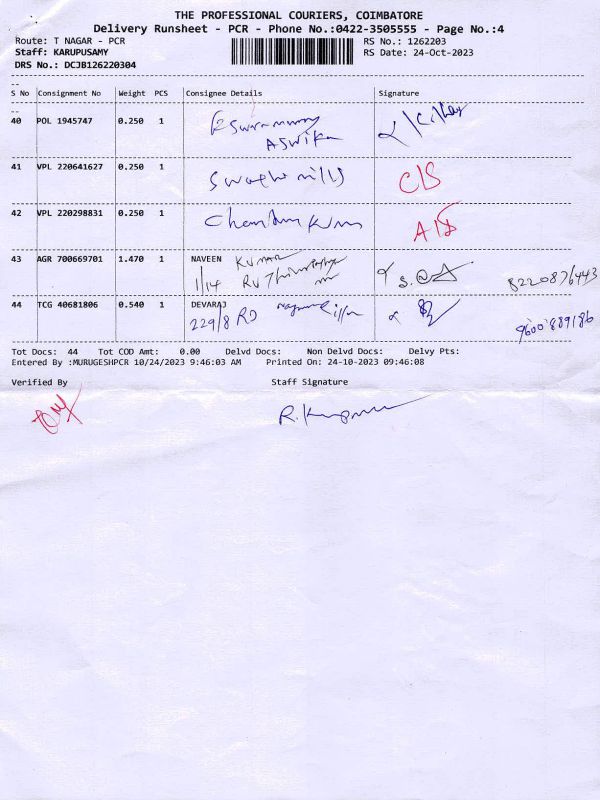 THE PROFESSIONAL COURIERS, COIMBATORE
Delivery Runsheet - PCR - Phone No.:0422-3505555 - Page No.:4
Route: T NAGAR - PCR RS No.: 1262203
Staff: KARUPUSAMY RS Date: 24-Oct-2023
DRS No.: DCJB126220304
S No Consignment No Weight PCS Consignee Details Signature
40 POL 1945747 0.250 1
ASWIKA
41 VPL 220641627 0.250 1
C/S
42 VPL 220298831 0.250 1
43 AGR 700669701 1.470 1 NAVEEN KUMAR
1/14 8220876443
44 TCG 40681806 0.540 1 DEVARAJ
229/8 RD 9600889186
Tot Docs: 44 Tot COD Amt: 0.00 Delvd Docs: Non Delvd Docs: Delvy Pts:
Entered By :MURUGESHPCR 10/24/2023 9:46:03 AM Printed On: 24-10-2023 09:46:08
Verified By Staff Signature